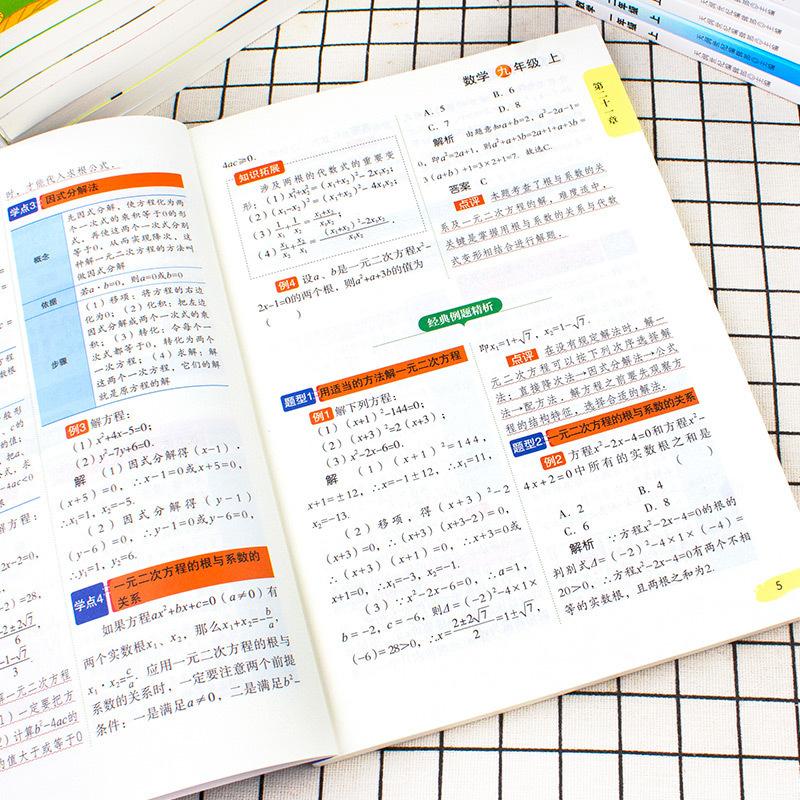 时，才能代入求根公式.
学点3 因式分解法
概念
先因式分解，使方程化为两
个一次式的乘积等于0的形
式，再使这两个一次式分别
等于0，从而实现降次，这
种解一元二次方程的方法叫
做因式分解
依据
若a·b=0，则a=0或b=0
步骤
（1）移项：将方程的右边
化为0；（2）化积：把左边
因式分解成两个一次式的乘
积；（3）转化：令每个一
次式都等于0，转化为两个
一次方程；（4）求解：解
这两个一次方程，它们的解
就是原方程的解
例3 解方程：
（1）x²+4x-5=0；
（2）y²-7y+6=0.
解 （1）因式分解得（x-1）
（x+5）=0，∴x-1=0或x+5=0，
∴x₁=1，x₂=-5.
（2）因式分解得（y-1）
（y-6）=0，∴y-1=0或y-6=0，
∴y₁=1，y₂=6.
学点4 一元二次方程的根与系数的
关系
如果方程ax²+bx+c=0（a≠0）有
两个实数根x₁、x₂，那么x₁+x₂=-b/a，
x₁·x₂=c/a.应用一元二次方程的根与
系数的关系时，一定要注意两个前提
条件：一是满足a≠0，二是满足b²-
数学 九年级 上
第二十一章
4ac≥0.
知识拓展
涉及两根的代数式的重要变
形：（1）x₁²+x₂²=（x₁+x₂）²-2x₁x₂；
（2）（x₁-x₂）²=（x₁+x₂）²-4x₁x₂；
（3）1/x₁+1/x₂=（x₁+x₂）/x₁x₂；
（4）x₂/x₁+x₁/x₂=（（x₁+x₂）²-2x₁x₂）/x₁x₂.
例4 设a、b是一元二次方程x²-
2x-1=0的两个根，则a²+a+3b的值为
（ ）
A. 5 B. 6
C. 7 D. 8
解析 由题意知a+b=2，a²-2a-1=
0，即a²=2a+1，则a²+a+3b=2a+1+a+3b=
3（a+b）+1=3×2+1=7.故选C.
答案 C
点评 本题考查了根与系数的关
系及一元二次方程的解，难度适中，
关键是掌握用根与系数的关系与代数
式变形相结合进行解题.
经典例题精析
题型1 用适当的方法解一元二次方程
例1 解下列方程：
（1）（x+1）²-144=0；
（2）（x+3）²=2（x+3）；
（3）x²-2x-6=0.
解 （1）（x+1）²=144，
x+1=±12，∴x=-1±12，∴x₁=11，
x₂=-13.
（2）移项，得（x+3）²-2
（x+3）=0，∴（x+3）（x+3-2）=0，
∴（x+3）（x+1）=0，∴x+3=0或
x+1=0，∴x₁=-3，x₂=-1.
（3）∵x²-2x-6=0，∴a=1，
b=-2，c=-6，则Δ=（-2）²-4×1×
（-6）=28>0，∴x=（2±2√7）/2=1±√7，
即x₁=1+√7，x₂=1-√7.
点评 在没有规定解法时，解一
元二次方程可以按下列次序选择解
法：直接降次法→因式分解法→公式
法→配方法.解方程之前要先观察方
程的结构特征，选择合适的解法.
题型2 一元二次方程的根与系数的关系
例2 方程x²-2x-4=0和方程x²-
4x+2=0中所有的实数根之和是
（ ）
A. 2 B. 4
C. 6 D. 8
解析 ∵方程x²-2x-4=0的根的
判别式Δ=（-2）²-4×1×（-4）=
20>0，∴方程x²-2x-4=0有两个不相
等的实数根，且两根之和为2.
5